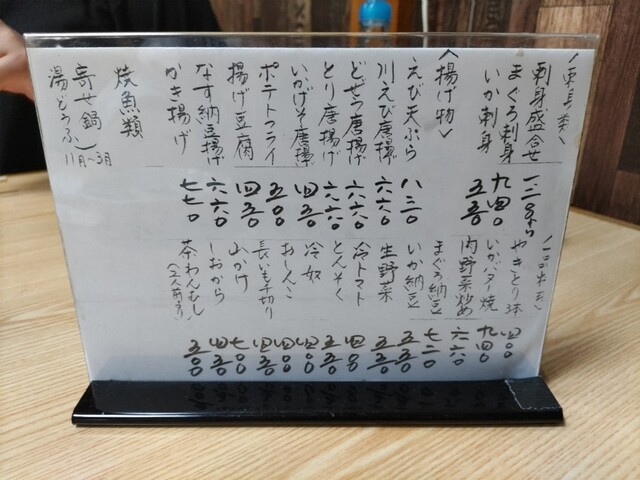 刺身盛合せ
まぐろ刺身 九四〇
いか刺身 五五〇
〈揚げ物〉
えび天ぷら 八二〇
川えび唐揚 六六〇
どぜう唐揚 六六〇
とり唐揚げ 六六〇
いかげそ唐揚 四五〇
ポテトフライ 五〇〇
揚げ豆腐 四五〇
なす納豆揚げ 六六〇
かき揚げ 七七〇
焼魚類
寄せ鍋
湯どうふ 11月〜3月
やきとり3本 四〇〇
いかバター焼 九四〇
肉野菜炒め 六六〇
まぐろ納豆 七二〇
いか納豆 五五〇
生野菜 五五〇
冷トマト 四〇〇
とんそく 五五〇
冷奴 四〇〇
おしんこ 四〇〇
長いも千切り 四五〇
山かけ 七〇〇
しおから 四五〇
茶わんむし 五〇〇